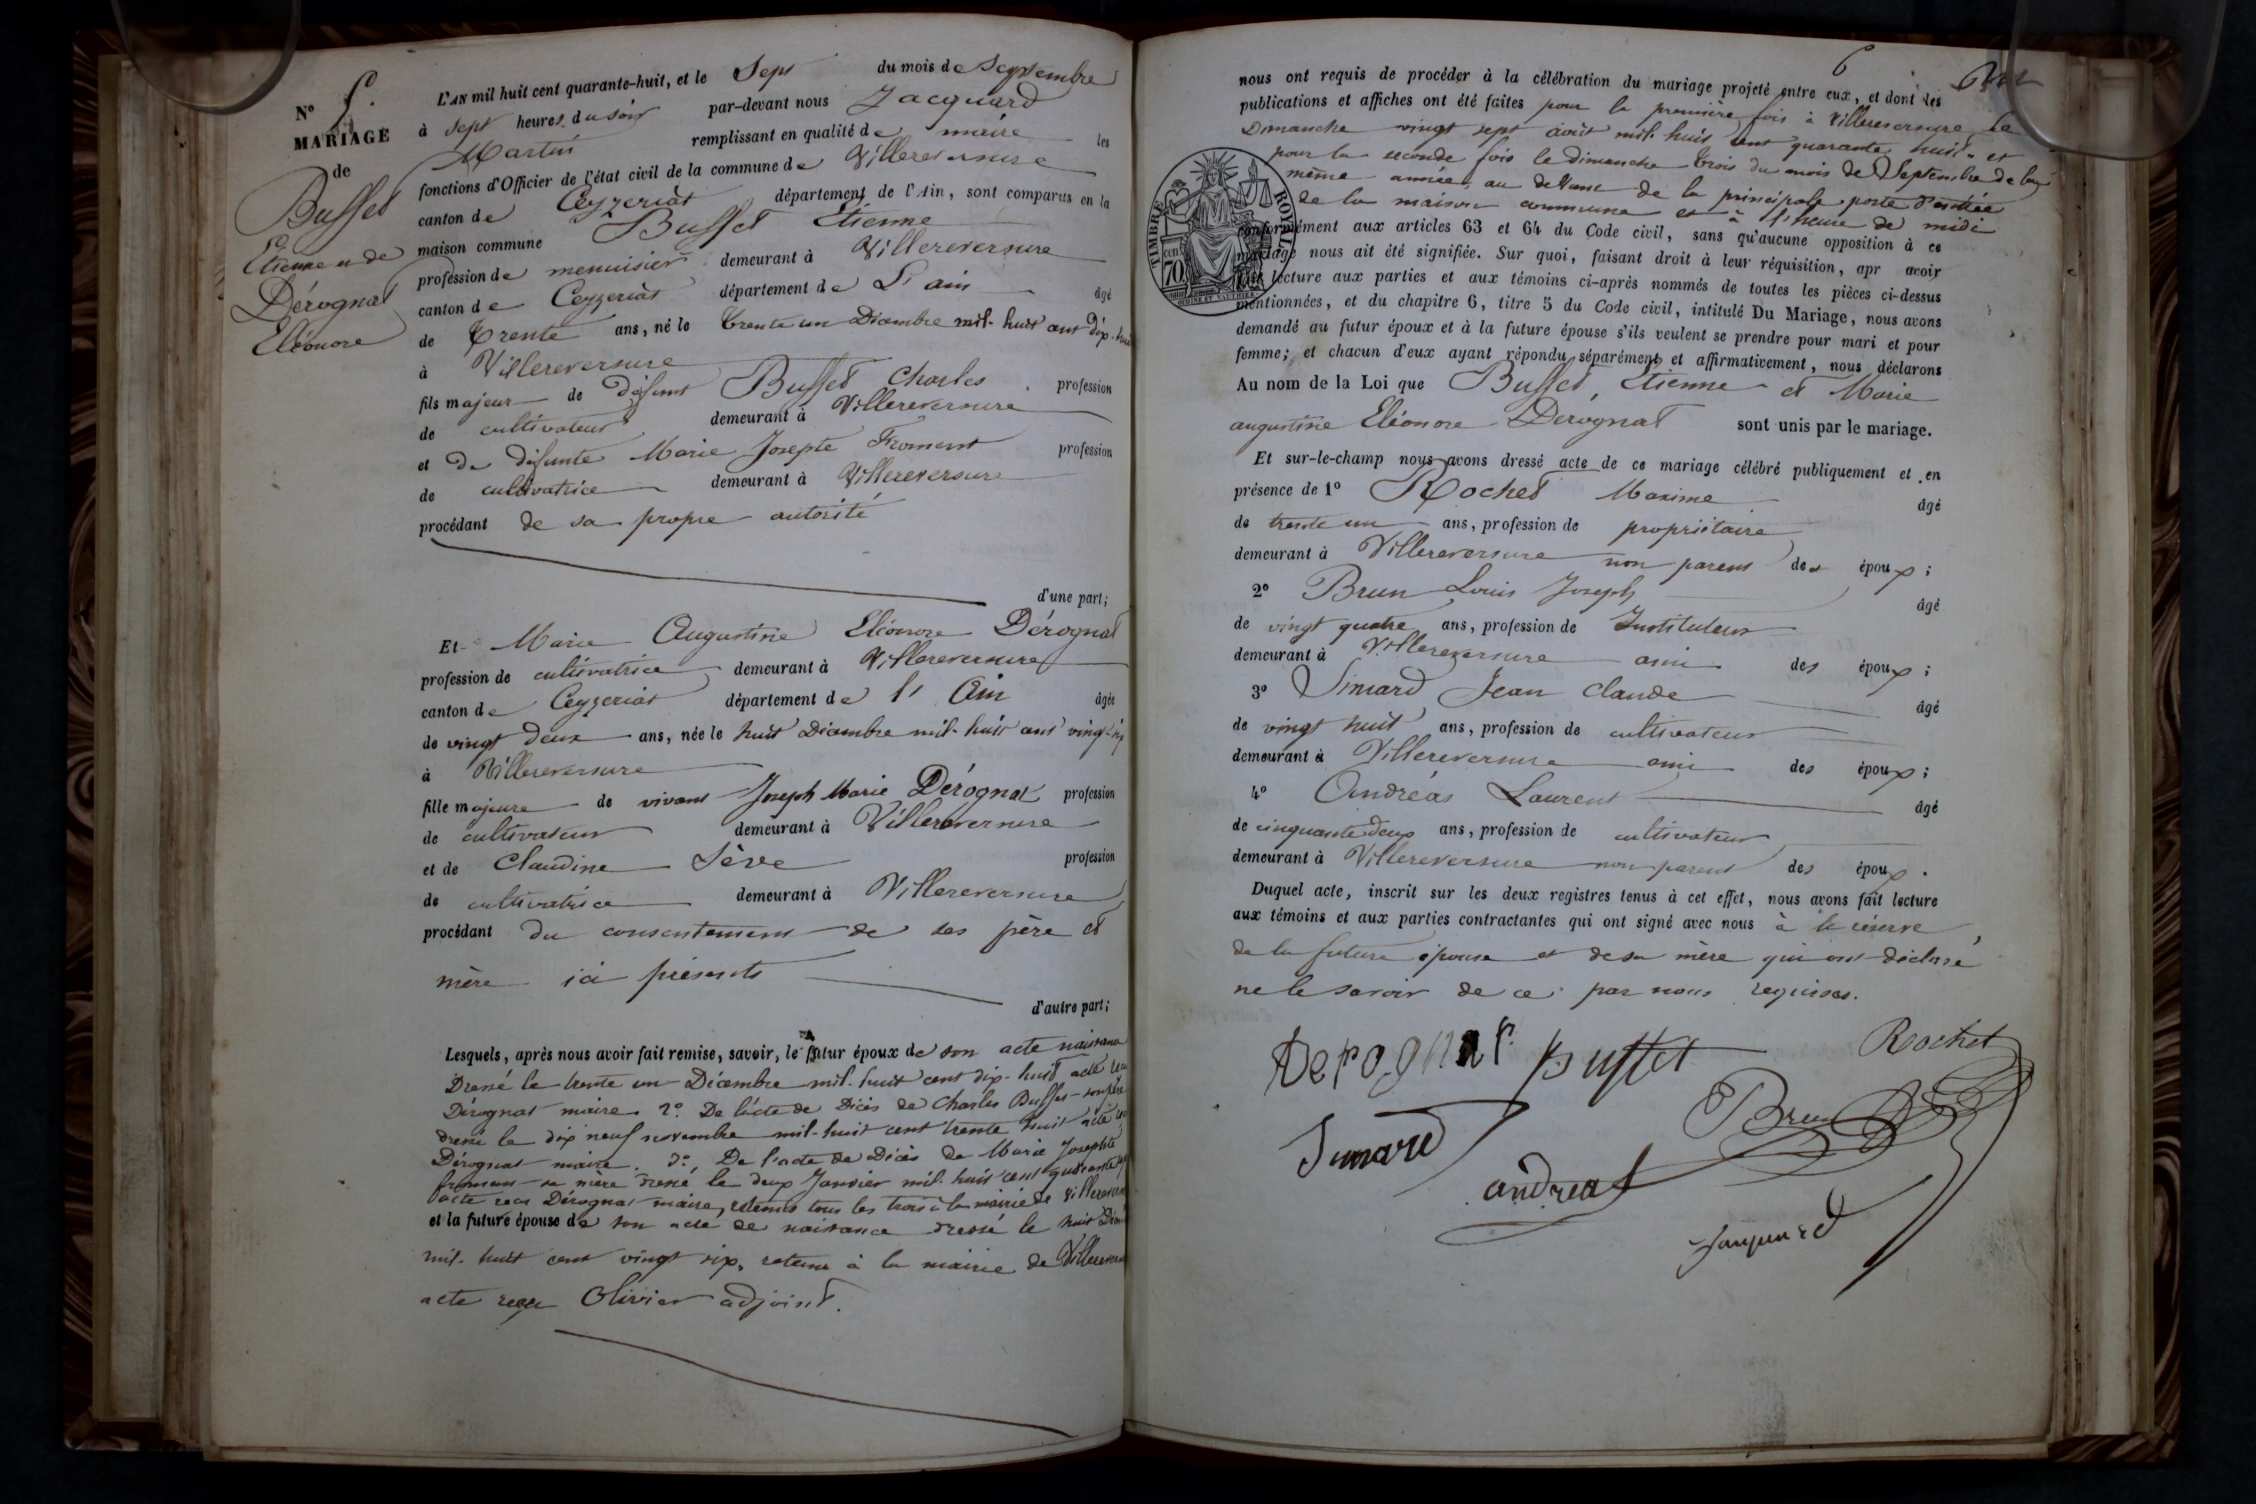 N° 5.
MARIAGE
de
Buffet
Etienne et de
Dérognat
Eléonore
L'AN mil huit cent quarante-huit, et le Sept du mois de Septembre
à sept heures du soir par-devant nous Jacquard
Martin remplissant en qualité de maire les
fonctions d'Officier de l'état civil de la commune de Villereversure
canton de Ceyzeriat département de l'Ain, sont comparus en la
maison commune Buffet Etienne
profession de menuisier demeurant à Villereversure
canton de Ceyzeriat département de L'ain âgé
de trente ans, né le trente un Décembre mil-huit cent dix-huit
à Villereversure
fils majeur de défunt Buffet Charles profession
de cultivateur demeurant à Villereversure
et de défunte Marie Josepte Froment profession
de cultivatrice demeurant à Villereversure
procédant de sa propre autorité
d'une part;
Et Marie Augustine Eléonore Dérognat
profession de cultivatrice demeurant à Villereversure
canton de Ceyzeriat département de l'Ain âgée
de vingt deux ans, née le huit Décembre mil-huit cent vingt-six
à Villereversure
fille majeure de vivant Joseph Marie Dérognat profession
de cultivateur demeurant à Villereversure
et de Claudine Sève profession
de cultivatrice demeurant à Villereversure
procédant du consentement de ses père et
mère ici présents
d'autre part;
Lesquels, après nous avoir fait remise, savoir, le futur époux de son acte naissance
Dressé le trente un Décembre mil-huit cent dix-huit acte reçu
Dérognat maire. 2° De l'acte de Décès de Charles Buffet son père
dressé le dix neuf novembre mil-huit cent trente huit acte reçu
Dérognat maire. 3° De l'acte de Décès de Marie Josephte
froment sa mère dressé le deux Janvier mil-huit cent quarante
acte reçu Dérognat maire, retenus tous les trois à la mairie de Villereversure
et la future épouse de son acte de naissance dressé le huit Décembre
mil-huit cent vingt six, retenu à la mairie de Villereversure
acte reçu Olivier adjoint.
6
nous ont requis de procéder à la célébration du mariage projeté entre eux, et dont les
publications et affiches ont été faites pour la première fois à Villereversure le
Dimanche vingt sept août mil-huit cent quarante huit et
pour la seconde fois le dimanche trois du mois de Septembre de la
même année, au devant de la principale porte d'entrée
de la maison commune et à l'heure de midi
TIMBRE ROYAL
70 cen
conformément aux articles 63 et 64 du Code civil, sans qu'aucune opposition à ce
mariage nous ait été signifiée. Sur quoi, faisant droit à leur réquisition, apr avoir
lecture aux parties et aux témoins ci-après nommés de toutes les pièces ci-dessus
mentionnées, et du chapitre 6, titre 5 du Code civil, intitulé Du Mariage, nous avons
demandé au futur époux et à la future épouse s'ils veulent se prendre pour mari et pour
femme; et chacun d'eux ayant répondu séparément et affirmativement, nous déclarons
Au nom de la Loi que Buffet Etienne et Marie
augustine Eléonore Dérognat sont unis par le mariage.
Et sur-le-champ nous avons dressé acte de ce mariage célébré publiquement et en
présence de 1° Rochet Maxime âgé
de trente un ans, profession de propriétaire
demeurant à Villereversure non parent des époux;
2° Brun Louis Joseph âgé
de vingt quatre ans, profession de Instituteur
demeurant à Villereversure ami des époux;
3° Simard Jean Claude âgé
de vingt huit ans, profession de cultivateur
demeurant à Villereversure ami des époux;
4° Andréas Laurent âgé
de cinquante deux ans, profession de cultivateur
demeurant à Villereversure non parent des époux.
Duquel acte, inscrit sur les deux registres tenus à cet effet, nous avons fait lecture
aux témoins et aux parties contractantes qui ont signé avec nous à la réserve
de la future épouse et de sa mère qui ont déclaré
ne le savoir de ce par nous requises.
Derognat Buffet Rochet
Simard Brun
andreas
Jacquard